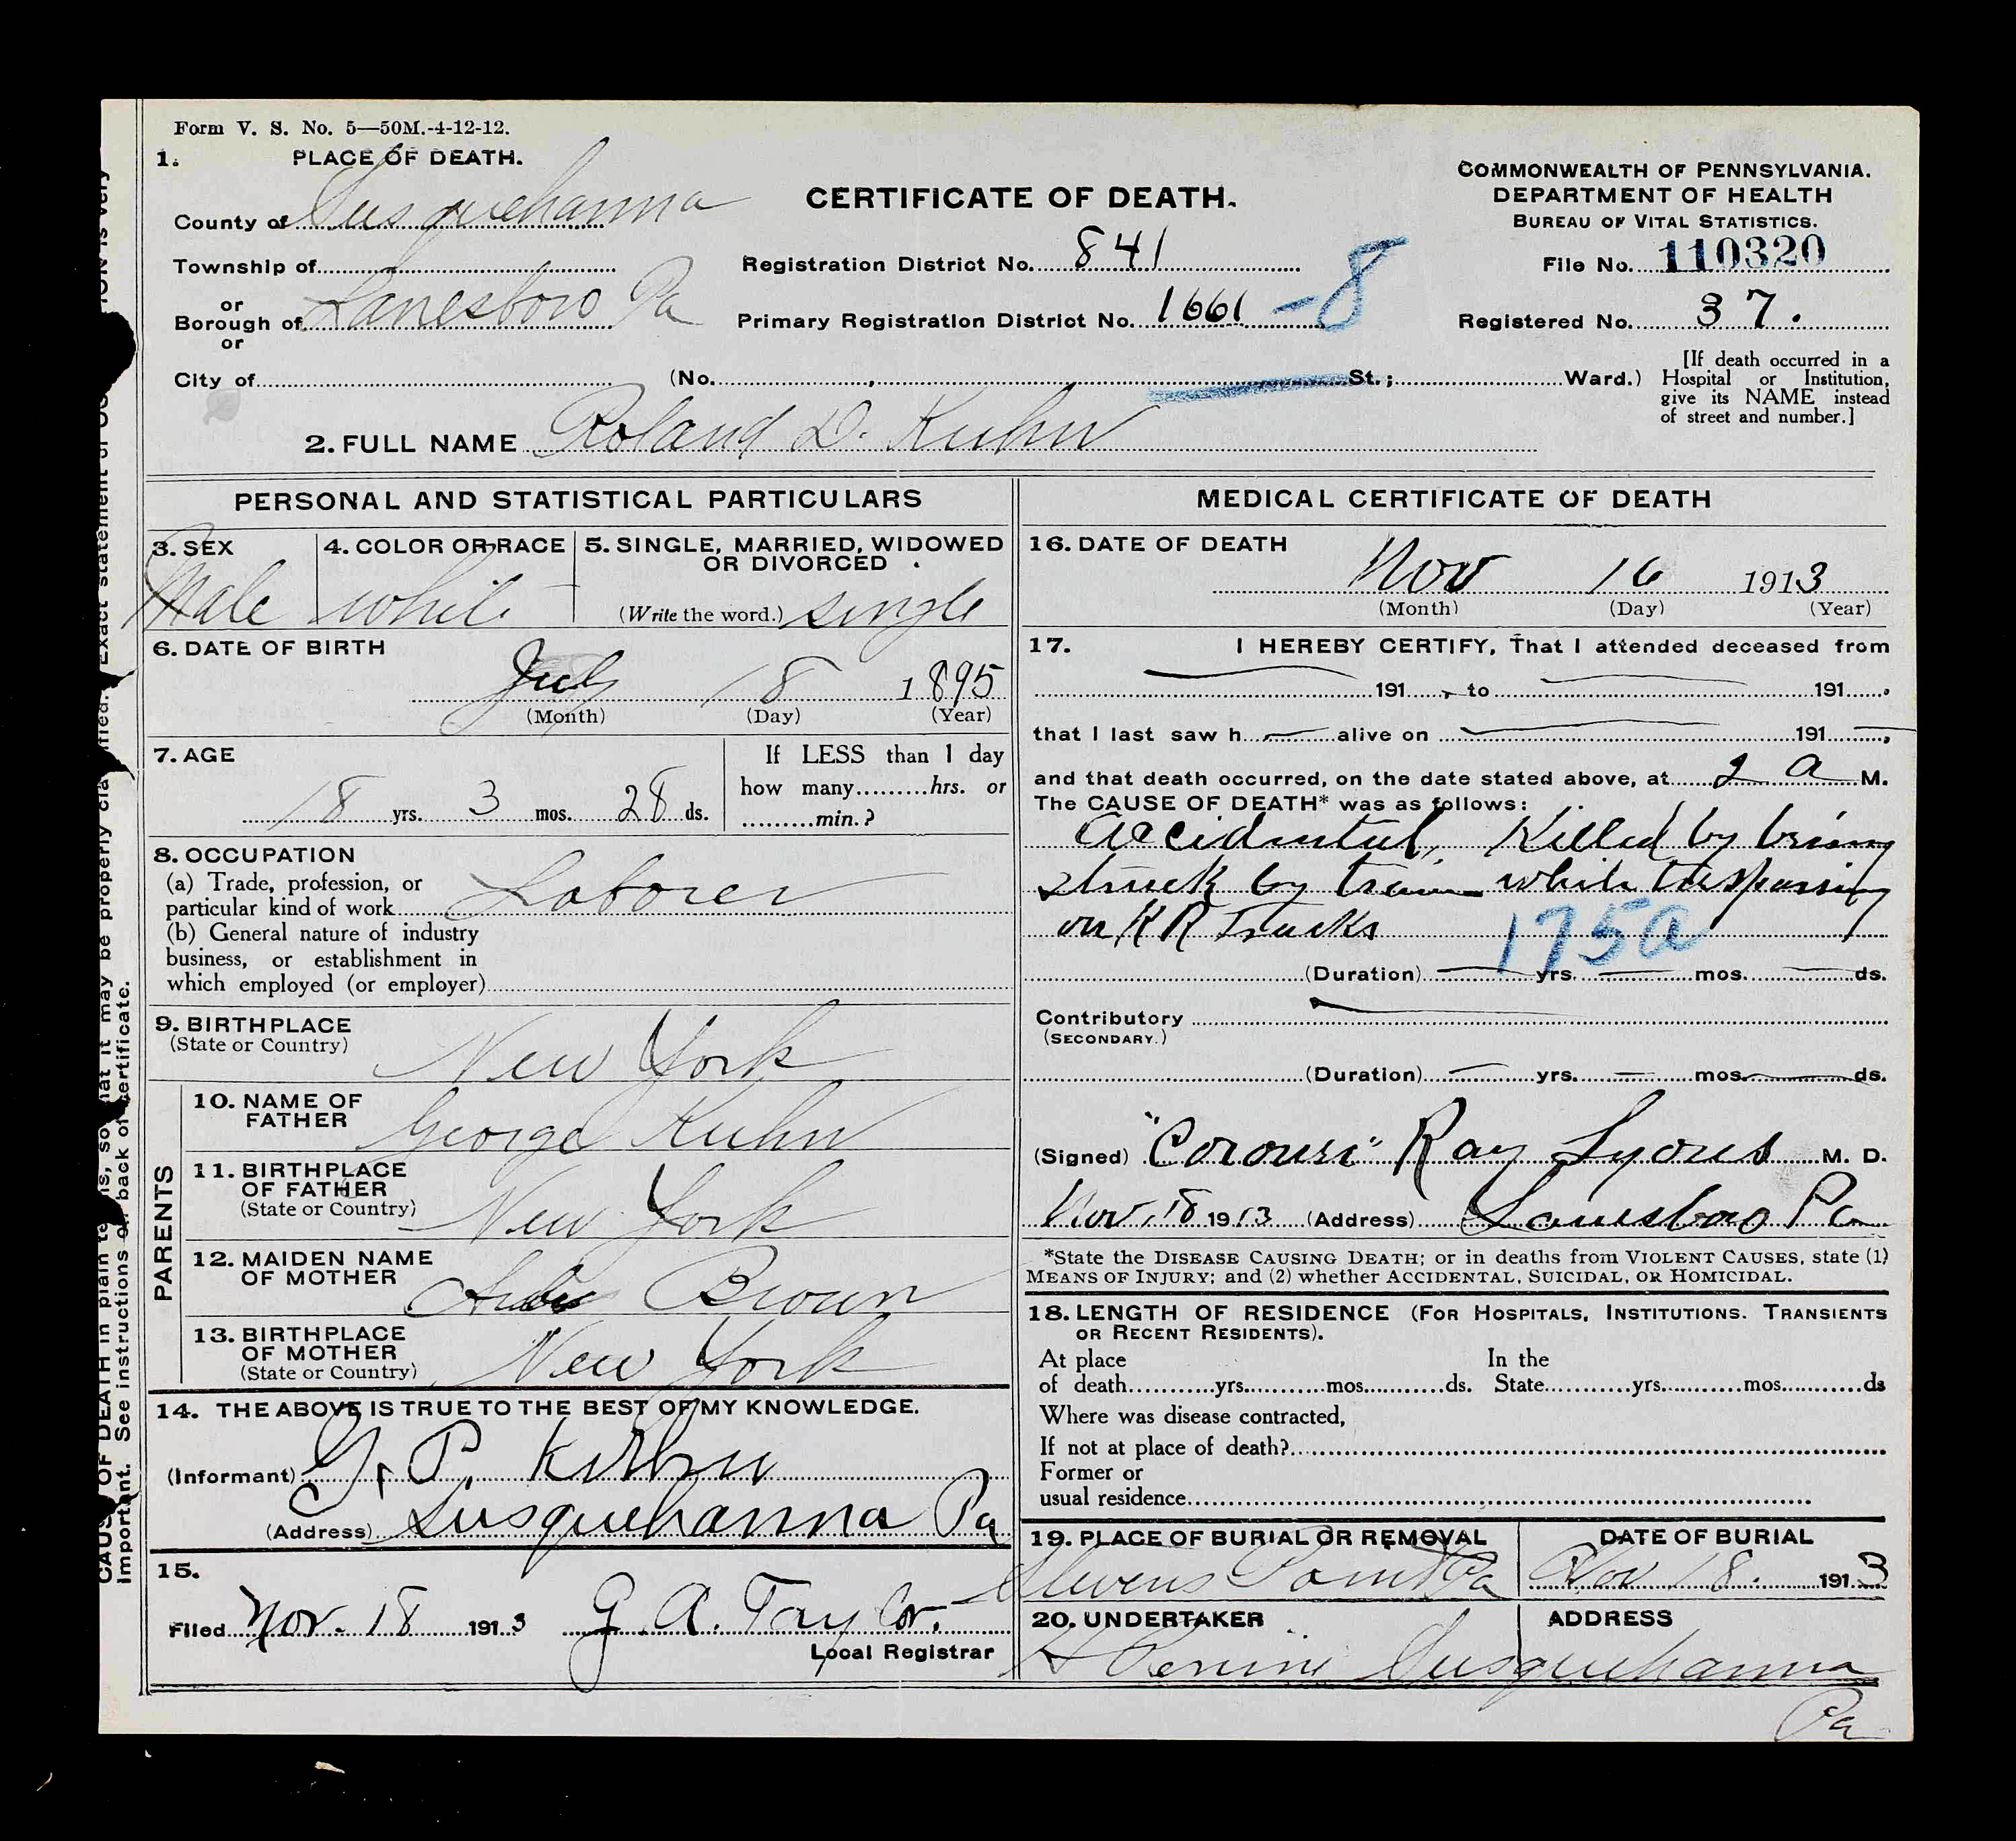 Form V. S. No. 5—50M.-4-12-12.
1. PLACE OF DEATH.
County of Susquehanna
Township of
or
Borough of Lanesboro Pa
or
City of
CERTIFICATE OF DEATH.
Registration District No. 841
Primary Registration District No. 1661 -8
(No. , St.; Ward.)
COMMONWEALTH OF PENNSYLVANIA.
DEPARTMENT OF HEALTH
BUREAU OF VITAL STATISTICS.
File No. 110320
Registered No. 37.
[If death occurred in a
Hospital or Institution,
give its NAME instead
of street and number.]
2. FULL NAME Roland D. Kuhn
PERSONAL AND STATISTICAL PARTICULARS
3. SEX
Male
4. COLOR OR RACE
white
5. SINGLE, MARRIED, WIDOWED
OR DIVORCED
(Write the word.) single
6. DATE OF BIRTH
July 18 1895
(Month) (Day) (Year)
7. AGE
18 yrs. 3 mos. 28 ds.
If LESS than 1 day
how many hrs. or
min.?
8. OCCUPATION
(a) Trade, profession, or
particular kind of work Laborer
(b) General nature of industry
business, or establishment in
which employed (or employer)
9. BIRTHPLACE
(State or Country) New York
PARENTS
10. NAME OF
FATHER George Kuhn
11. BIRTHPLACE
OF FATHER
(State or Country) New York
12. MAIDEN NAME
OF MOTHER Brown
13. BIRTHPLACE
OF MOTHER
(State or Country) New York
14. THE ABOVE IS TRUE TO THE BEST OF MY KNOWLEDGE.
(Informant) G. P. Kuhn
(Address) Susquehanna Pa
15.
Filed Nov. 18 1913 G. A. Taylor.
Local Registrar
MEDICAL CERTIFICATE OF DEATH
16. DATE OF DEATH
Nov 16 1913
(Month) (Day) (Year)
17. I HEREBY CERTIFY, That I attended deceased from
191 , to 191 .
that I last saw h alive on 191 ,
and that death occurred, on the date stated above, at 2 a M.
The CAUSE OF DEATH* was as follows:
Accidental, Killed by being
struck by train while trespassing
on R R Tracks 175a
(Duration) yrs. mos. ds.
Contributory
(SECONDARY.)
(Duration) yrs. mos. ds.
(Signed) "Coroner" Ray Lyons M. D.
Nov. 18 1913 (Address) Lanesboro Pa
*State the DISEASE CAUSING DEATH; or in deaths from VIOLENT CAUSES, state (1)
MEANS OF INJURY; and (2) whether ACCIDENTAL, SUICIDAL, OR HOMICIDAL.
18. LENGTH OF RESIDENCE (FOR HOSPITALS, INSTITUTIONS. TRANSIENTS
OR RECENT RESIDENTS).
At place In the
of death yrs. mos. ds. State yrs. mos. ds
Where was disease contracted,
If not at place of death?
Former or
usual residence
19. PLACE OF BURIAL OR REMOVAL
Stevens Point Pa
DATE OF BURIAL
Nov 18. 1913
20. UNDERTAKER
ADDRESS
Susquehanna
Pa
CAUSE OF DEATH in plain
Important. See instructions on back of certificate.